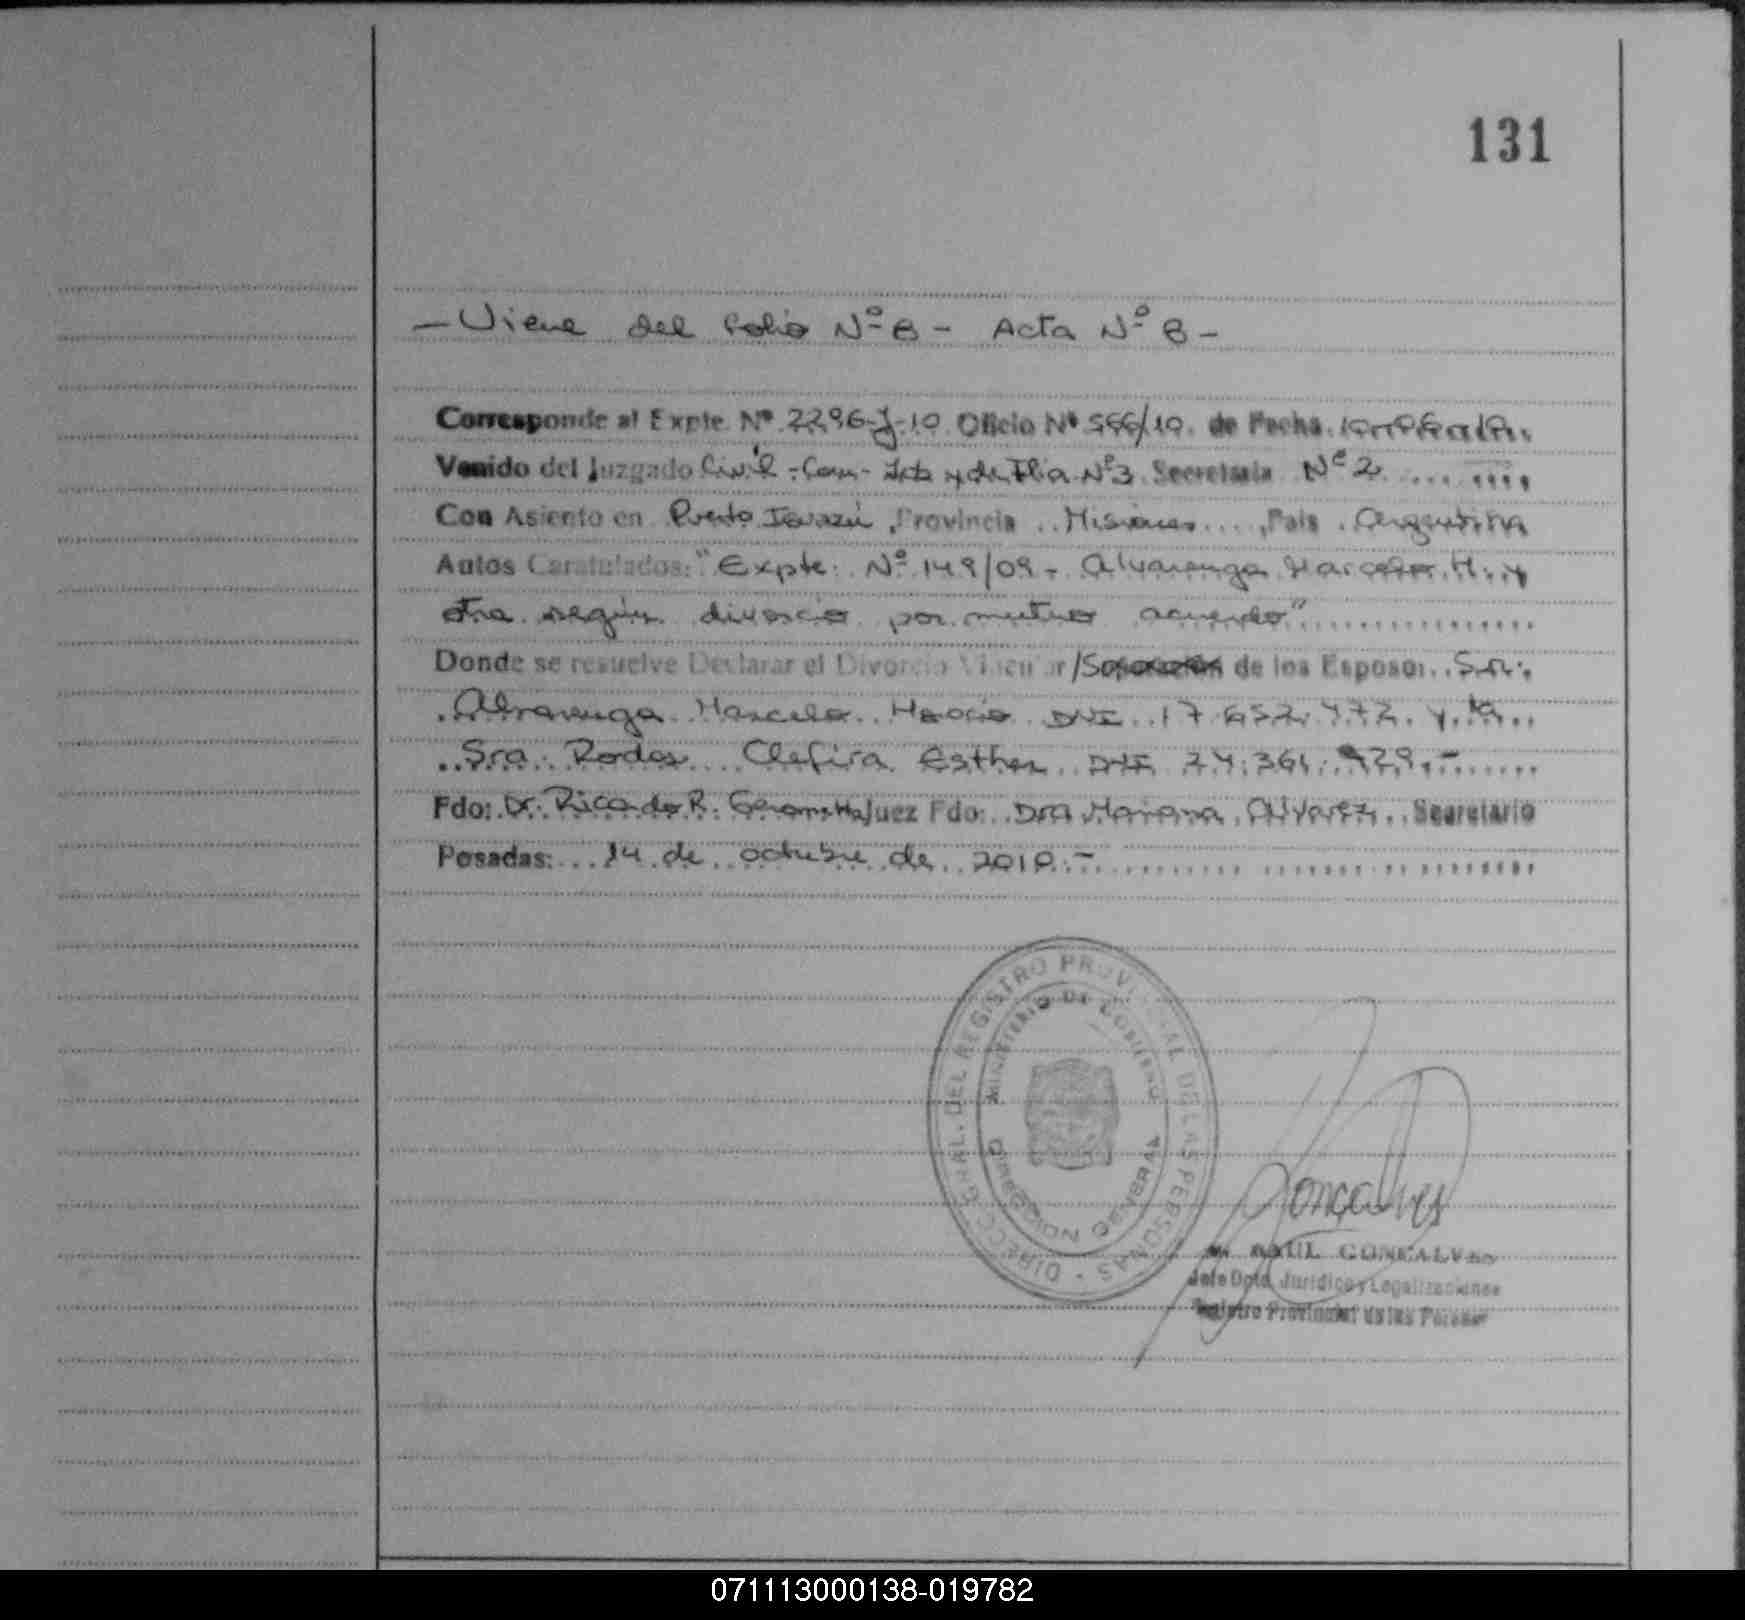 131
- Viene del folio Nº 8 - Acta Nº 8 -
Corresponde al Expte. Nº 2296-J-10 Oficio Nº 566/10. de Fecha
Venido del Juzgado Civil - Com - Lab y de Flia Nº 3 Secretaria Nº 2
Con Asiento en Puerto Iguazú, Provincia Misiones, Pais Argentina
Autos Caratulados: "Expte. Nº 149/09 - Alvarenga Marcelo H. y
otra según divorcio por mutuo acuerdo"
Donde se resuelve Declarar el Divorcio Vincular/ de los Esposos Sr.
Alvarenga Marcelo Horacio DNI 17.652.472 y la
Sra. Rodas Clefira Esther DNI 24.361.929.-
Fdo: Dr. Ricardo R. Juez Fdo: Dra Mariana Alvarez. Secretario
Posadas: 14 de octubre de 2010.-
DIRECC. GRAL. DEL REGISTRO PROVINCIAL DE LAS PERSONAS
MINISTERIO DE GOBIERNO
Gonçalves
RAUL GONCALVES
Jefe Dpto. Juridico y Legalizaciones
Registro Provincial de las Personas
071113000138-019782